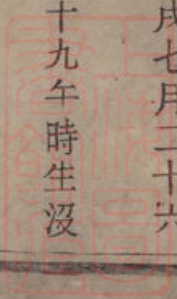 戌七月二十六
十九午時生沒